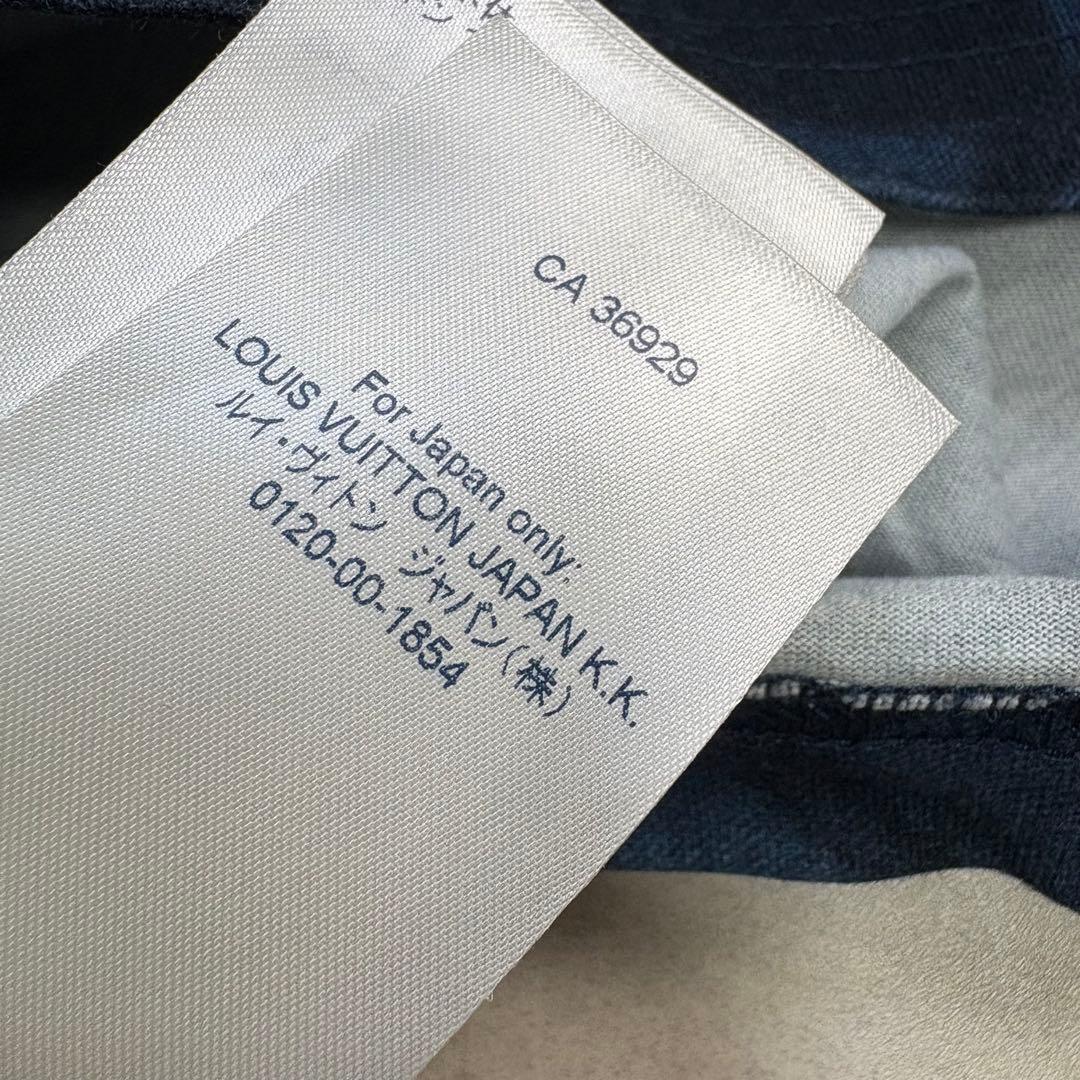 CA 36929
For Japan only:
LOUIS VUITTON JAPAN K.K.
ルイ・ヴィトン ジャパン(株)
0120-00-1854